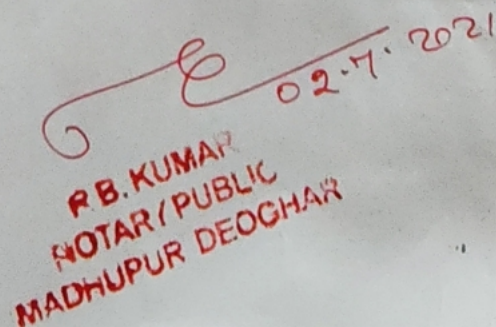 02.7.2021
P.B. KUMAR
NOTARY PUBLIC
MADHUPUR DEOGHAR